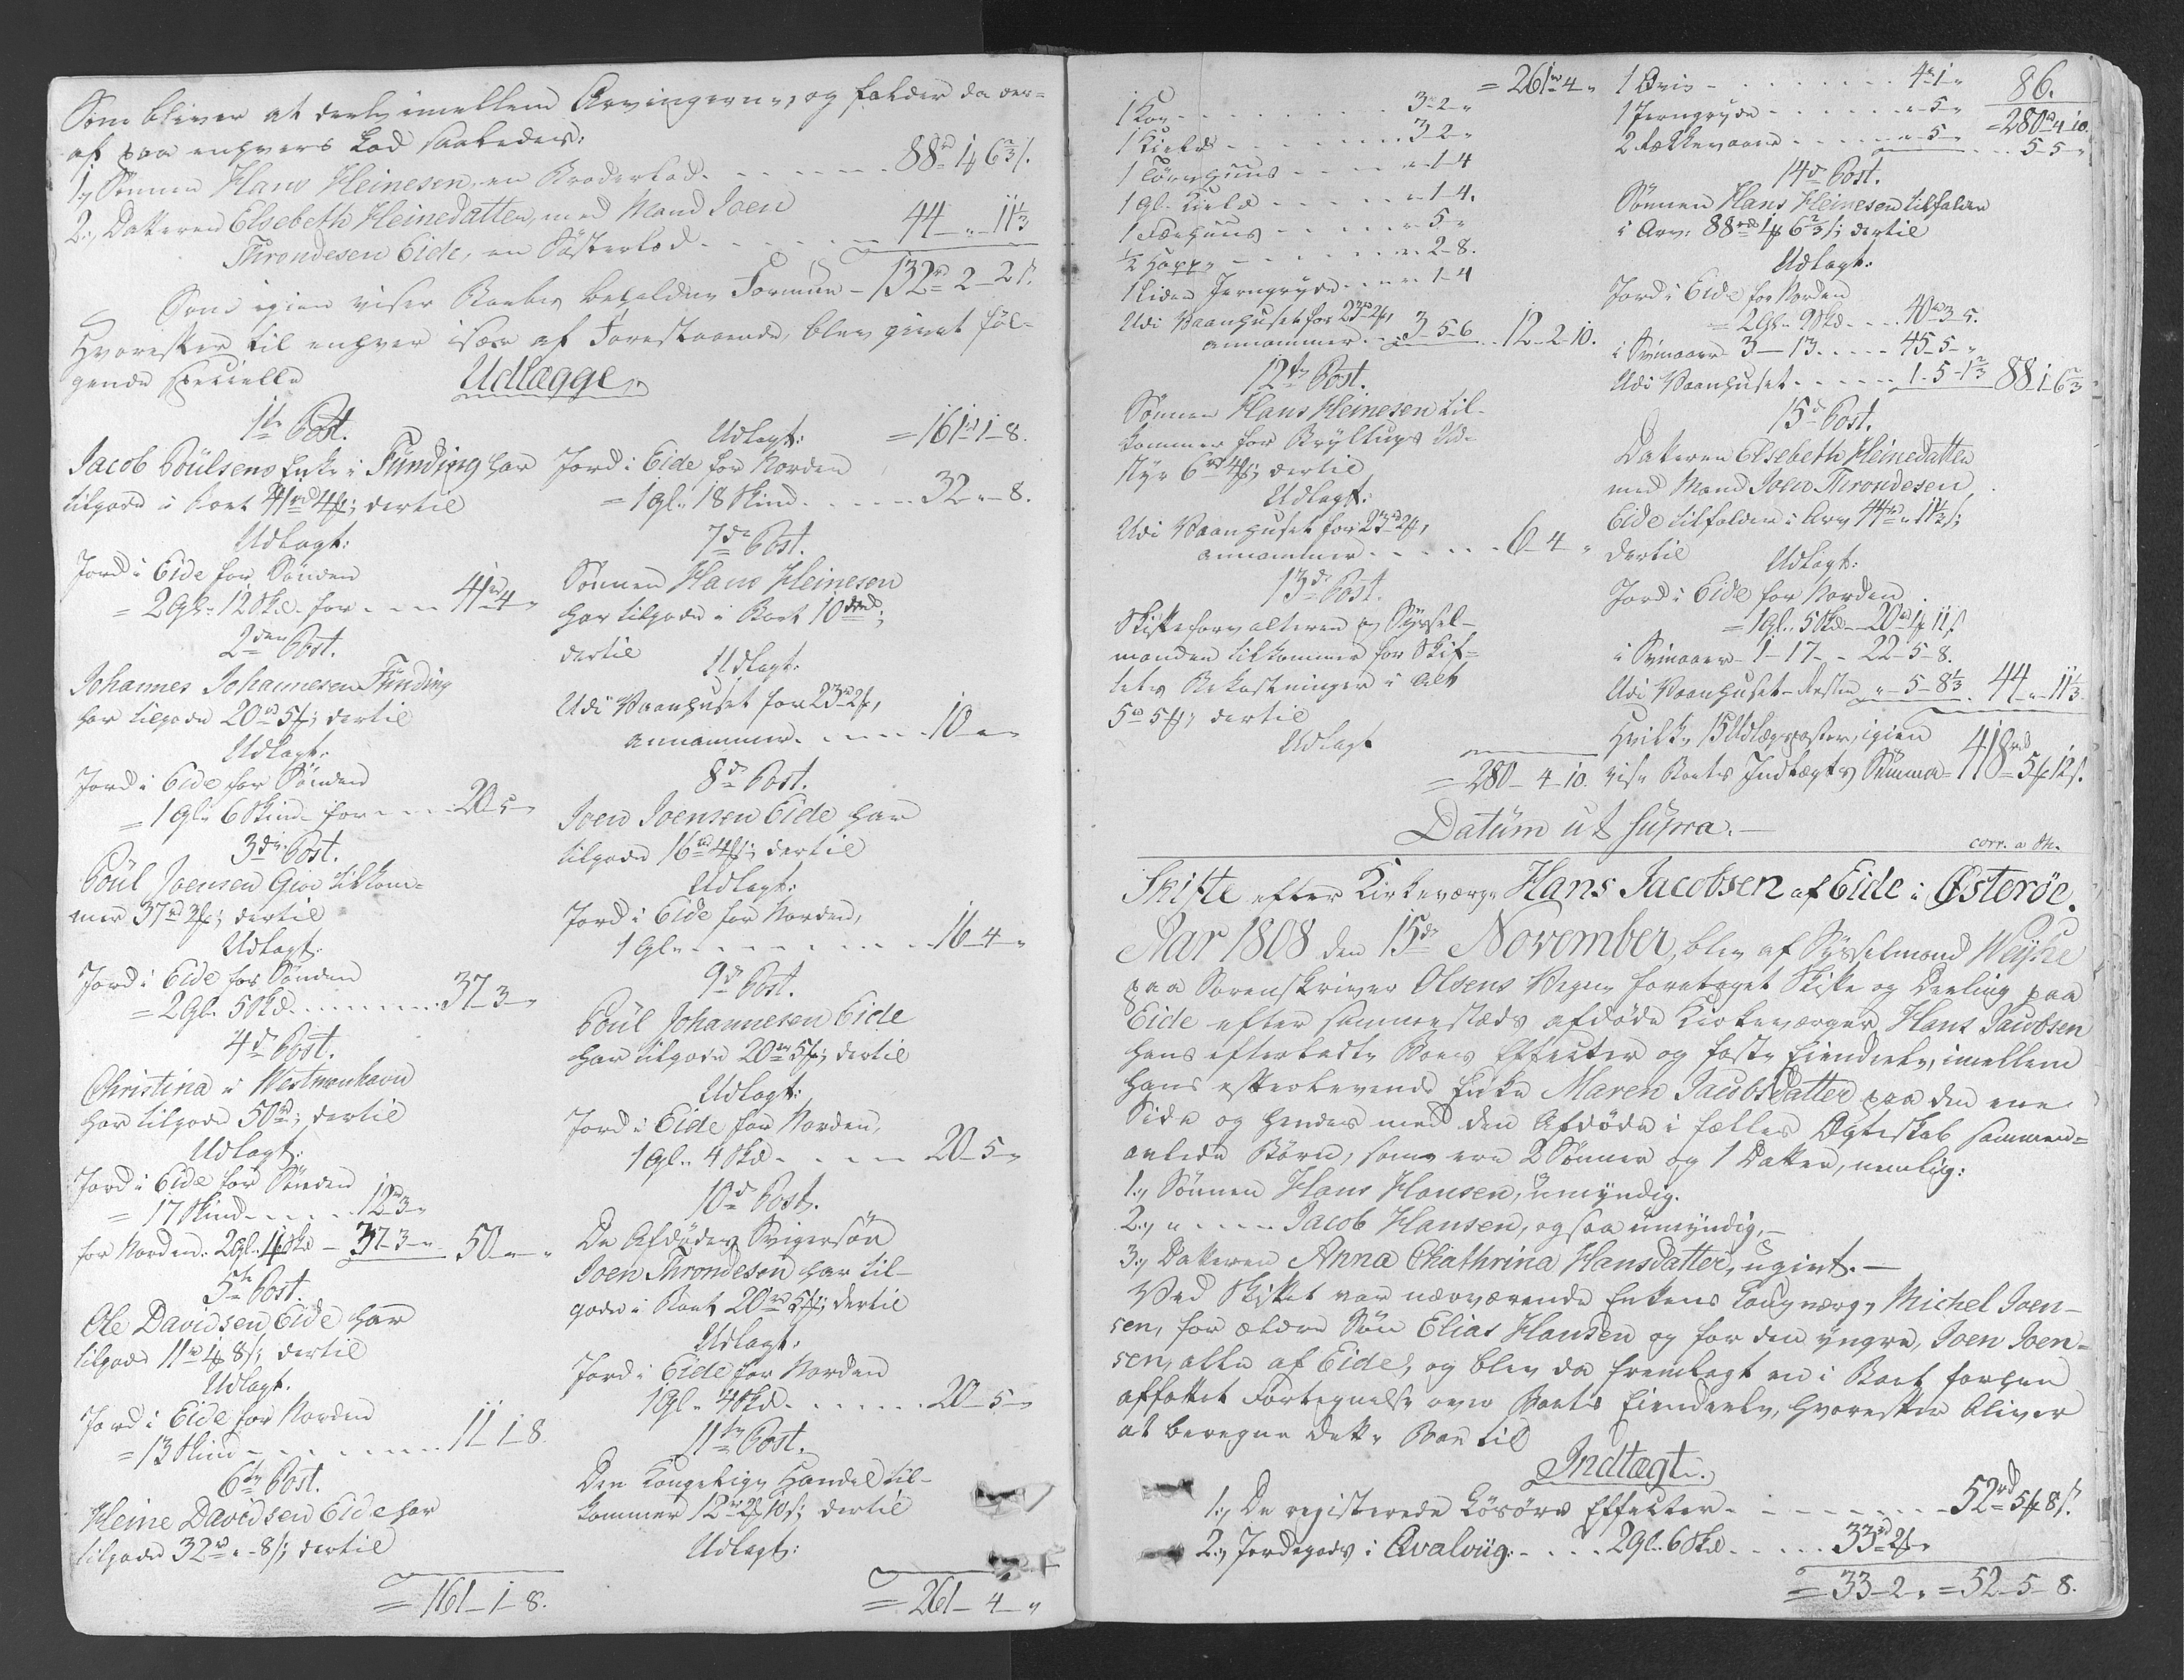 Som bliver at deele imellem Arvingerne, og falder da der=
af paa enhvers Lod saaledes:
1, Sønnen Hans Heinesen, en Broderlod - - - 88rd 1 f 6 2/3 s.
2, Datteren Elsebeth Heinedatter, med Mand Joen
Throndesen Eide, en Søsterlod - - - 44 - " - 11 1/3
Som igien viser Boets beholdne Formue - 132rd 2 - 2 s.
Hvorefter til enhver især af Forestaaende, blev giort føl=
gende specielle Udlægge,
1te Post.
Jacob Poulsens Enke i Funding har
tilgode i Boet 41rd 4 f; dertil
Udlagt:
Jord i Eide for Sønden
= 2 Gl. 12 Skd. for - - - 41rd 4 "
2den Post.
Johannes Johannesen Funding
har tilgode 20rd 5 f; dertil
Udlagt:
Jord i Eide for Sønden
= 1 Gl. 6 Skind for - - - 20 - 5 "
3die Post.
Poul Joensen Gioe tilkom=
mer 37rd 3 f; dertil
Udlagt:
Jord i Eide for Sønden
= 2 Gl. 5 Skd. - - - 37 - 3 "
4de Post.
Christina i Westmanhavn
har tilgode 50rd; dertil
Udlagt:
Jord i Eide for Sønden
= 17 Skind - - - 12rd 3 "
for Norden: 2 Gl. 4 Skd - 37 - 3 - " 50 - " - "
5te Post.
Ole Davidsen Eide har
tilgode 11rd 1 f 8 s; dertil
Udlagt.
Jord i Eide for Norden
= 13 Skind - - - 11 - 1 - 8.
6te Post.
Heine Davidsen Eide har
tilgode 32rd " - 8 s; dertil
= 161 - 1 - 8.
Udlagt: = 161rd 1 - 8.
Jord i Eide for Norden
= 1 gl. 18 Skind - - - 32 " - 8.
7de Post.
Sønnen Hans Heinesen
har tilgode i Boet 10rd;
dertil Udlagt:
Udi Vaanhuset for 23rd 2 f,
annammer - - - 10 " "
8de Post.
Joen Joensen Eide har
tilgode 16rd 4 f; dertil
Udlagt:
Jord i Eide for Norden,
1 gl. - - - 16 - 4 "
9de Post.
Poul Johannesen Eide
har tilgode 20rd 5 f; dertil
Udlagt:
Jord i Eide for Norden,
1 gl. 4 Skd - - - 20 - 5 "
10de Post.
De Afdødes Svigersøn
Joen Throndesen har til-
gode i Boet 20rd 5 f; dertil
Udlagt:
Jord i Eide for Norden
1 gl. 4 Skd. - - - 20 - 5 - "
11te Post.
Den Kongelige Handel til-
kommer 12rd 2 f 10 s; dertil
Udlagt:
= 261 - 4 - "
= 261rd 4 "
1 Koe - - - 3 - 2 - "
1 Kield - - - 3 - 2 - "
1 Tørvehuus - - - " - 1 - 4
1 gl. Kield - - - " - 1 - 4.
1 Faarhuus - - - " - 5 - "
1/2 Happ - - - " - 2 - 8.
1 liden Jerngryde - - - " - 1 - 4
Udi Vaanhuset for 23rd 2 f,
annammer - 3 - 5 - 6 12 - 2 - 10.
12te Post.
Sønnen Hans Heinesen til-
kommer for Bryllups Ud-
styr 6rd 4 f; dertil
Udlagt:
Udi Vaanhuset for 23rd 2 f,
annammer - - - 6 - 4 "
13de Post.
Skifteforvalteren og Syssel-
manden tilkommer for Skif=
tets Bekostninger i Alt
5rd 5 f; dertil
Udlagt
= 280 - 4 - 10.
86.
1 Qvie - - - 4rd 1 "
1 Jerngryde - - - " - 5 - " = 280rd 4 - 10.
2 - - - " - 5 - " 5 - 5 "
14de Post.
Sønnen Hans Heinesen tilfalden
i Arv: 88rd 1 f 6 2/3 s; dertil
Udlagt:
Jord i Eide for Norden
= 2 Gl. 9 Skd. - - - 40rd 3 - 5.
i Svinaaer 3 - 13 - - - 45 - 5 - "
Udi Vaanhuset - - - 1 - 5 - 1 2/3 88 - 1 - 6 2/3
15de Post.
Datteren Elsebeth Heinedatter
med Mand Joen Throndesen
Eide tilfalden i Arv 44rd " 11 1/3 s;
dertil Udlagt:
Jord i Eide for Norden
= 1 gl. 5 Skd. - 20rd 1 f 11 s
i Svinaaer - 1 - 17 - - 22 - 5 - 8.
Udi Vaanhuset - Resten " - 5 - 8 1/3 44 " 11 1/3.
Hvilke 15 Udlægsposter, igien
vise Boets Indtægts Summa = 418rd 5 f 12 s.
Datum ut supra.-
corr. a Th.
Skifte efter Kirkeværge Hans Jacobsen af Eide i Østerøe.
Aar 1808 den 15de November, blev af Sysselmand Weyhe
paa Sorenskriver Olsens Vegne foretaget Skifte og Deeling paa
Eide efter sammestæds afdøde Kirkeværger Hans Jacobsen
hans efterladte Boes Effecter og faste Eiendeele, imellem
hans efterlevende Enke Maren Jacobsdatter paa den ene
Side og hendes med den Afdøde i fælles Ægteskab sammen=
avlede Børn, som ere 2 Sønner og 1 Datter, nemlig:
1, Sønnen Hans Hansen, umyndig.
2, " - - - Jacob Hansen, og saa umyndig, -
3, Datteren Anna Chathrina Hansdatter, ugivt. -
Ved Skiftet var nærværende Enkens Laugværge Michel Joen-
sen, for ældre Søn Elias Hansen og for den yngre, Joen Joen=
sen, alle af Eide, og blev da fremlagt en i Boet forhen
affattet Fortegnelse over Boets Eiendeele, hvorefter bliver
at beregne dette Boe til
Indtægt.
1, De registerede Løsøre Effecter - - - 52rd 5 f 8 s.
2, Jordegods i Qvalviig: - - - 2 gl. 6 Skd. - - - 33rd 2 f "
= 33 - 2 " = 52 - 5 - 8.